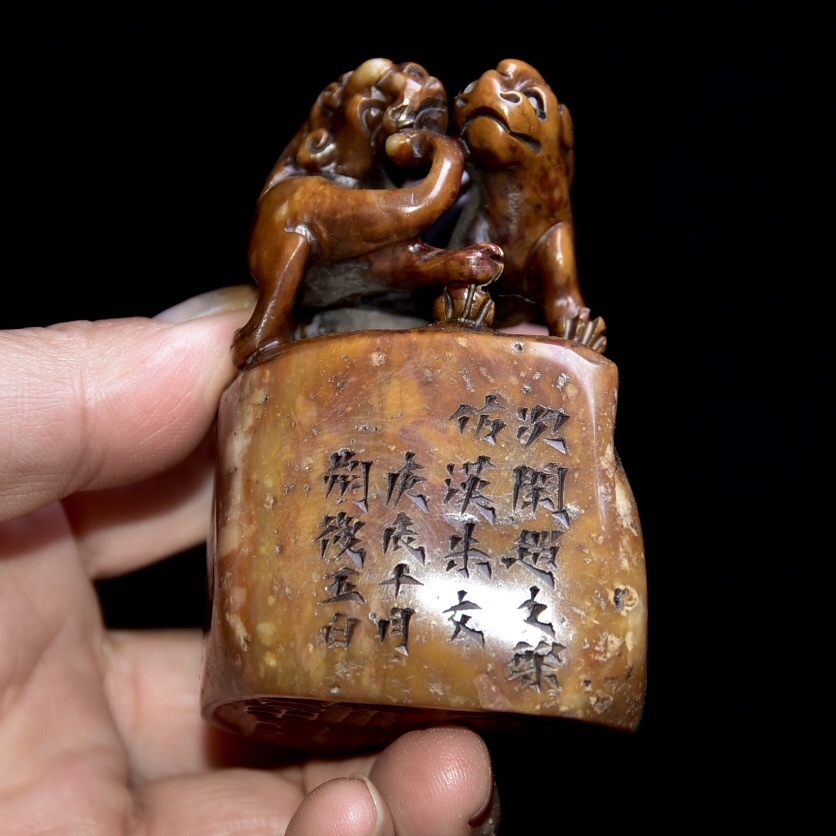 次閑趙之琛
仿漢朱文
庚戌十月
朔後五日